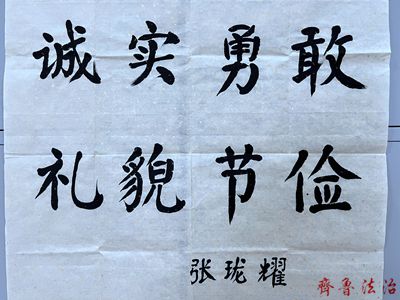 诚实勇敢
礼貌节俭
张珑耀
齐鲁法治